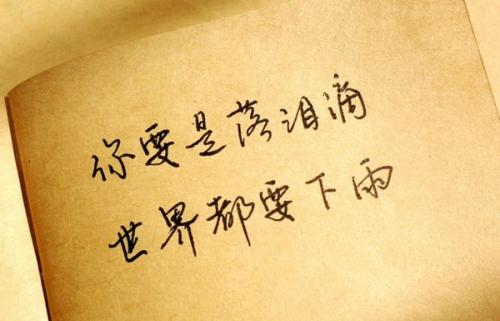 你要是落泪滴
世界都要下雨